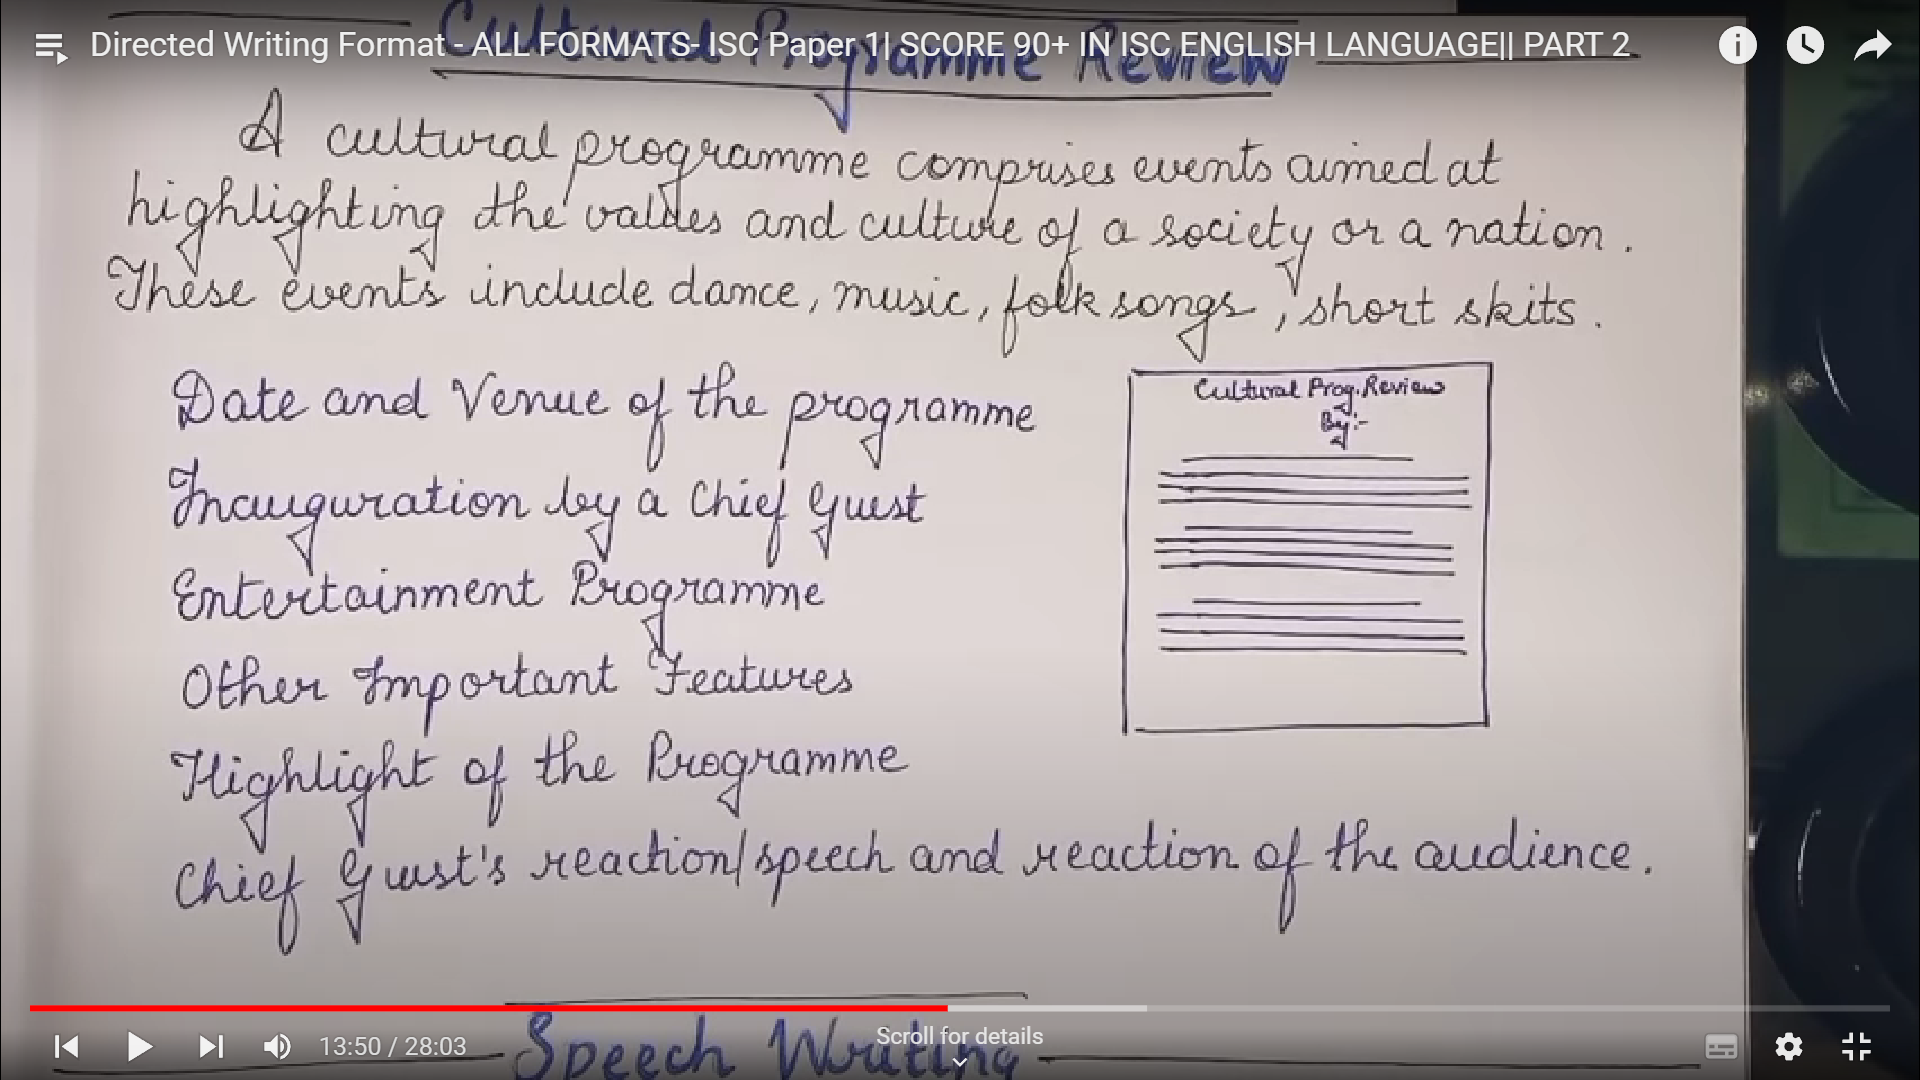 Cultural Programme Review
Directed Writing Format - ALL FORMATS- ISC Paper 1| SCORE 90+ IN ISC ENGLISH LANGUAGE|| PART 2
A cultural programme comprises events aimed at
highlighting the values and culture of a society or a nation.
These events include dance, music, folk songs, short skits.
Date and Venue of the programme
Inauguration by a Chief Guest
Entertainment Programme
Other Important Features
Highlight of the Programme
Chief Guest's reaction/speech and reaction of the audience.
Cultural Prog. Review
By:-
Speech Writing
13:50 / 28:03
Scroll for details